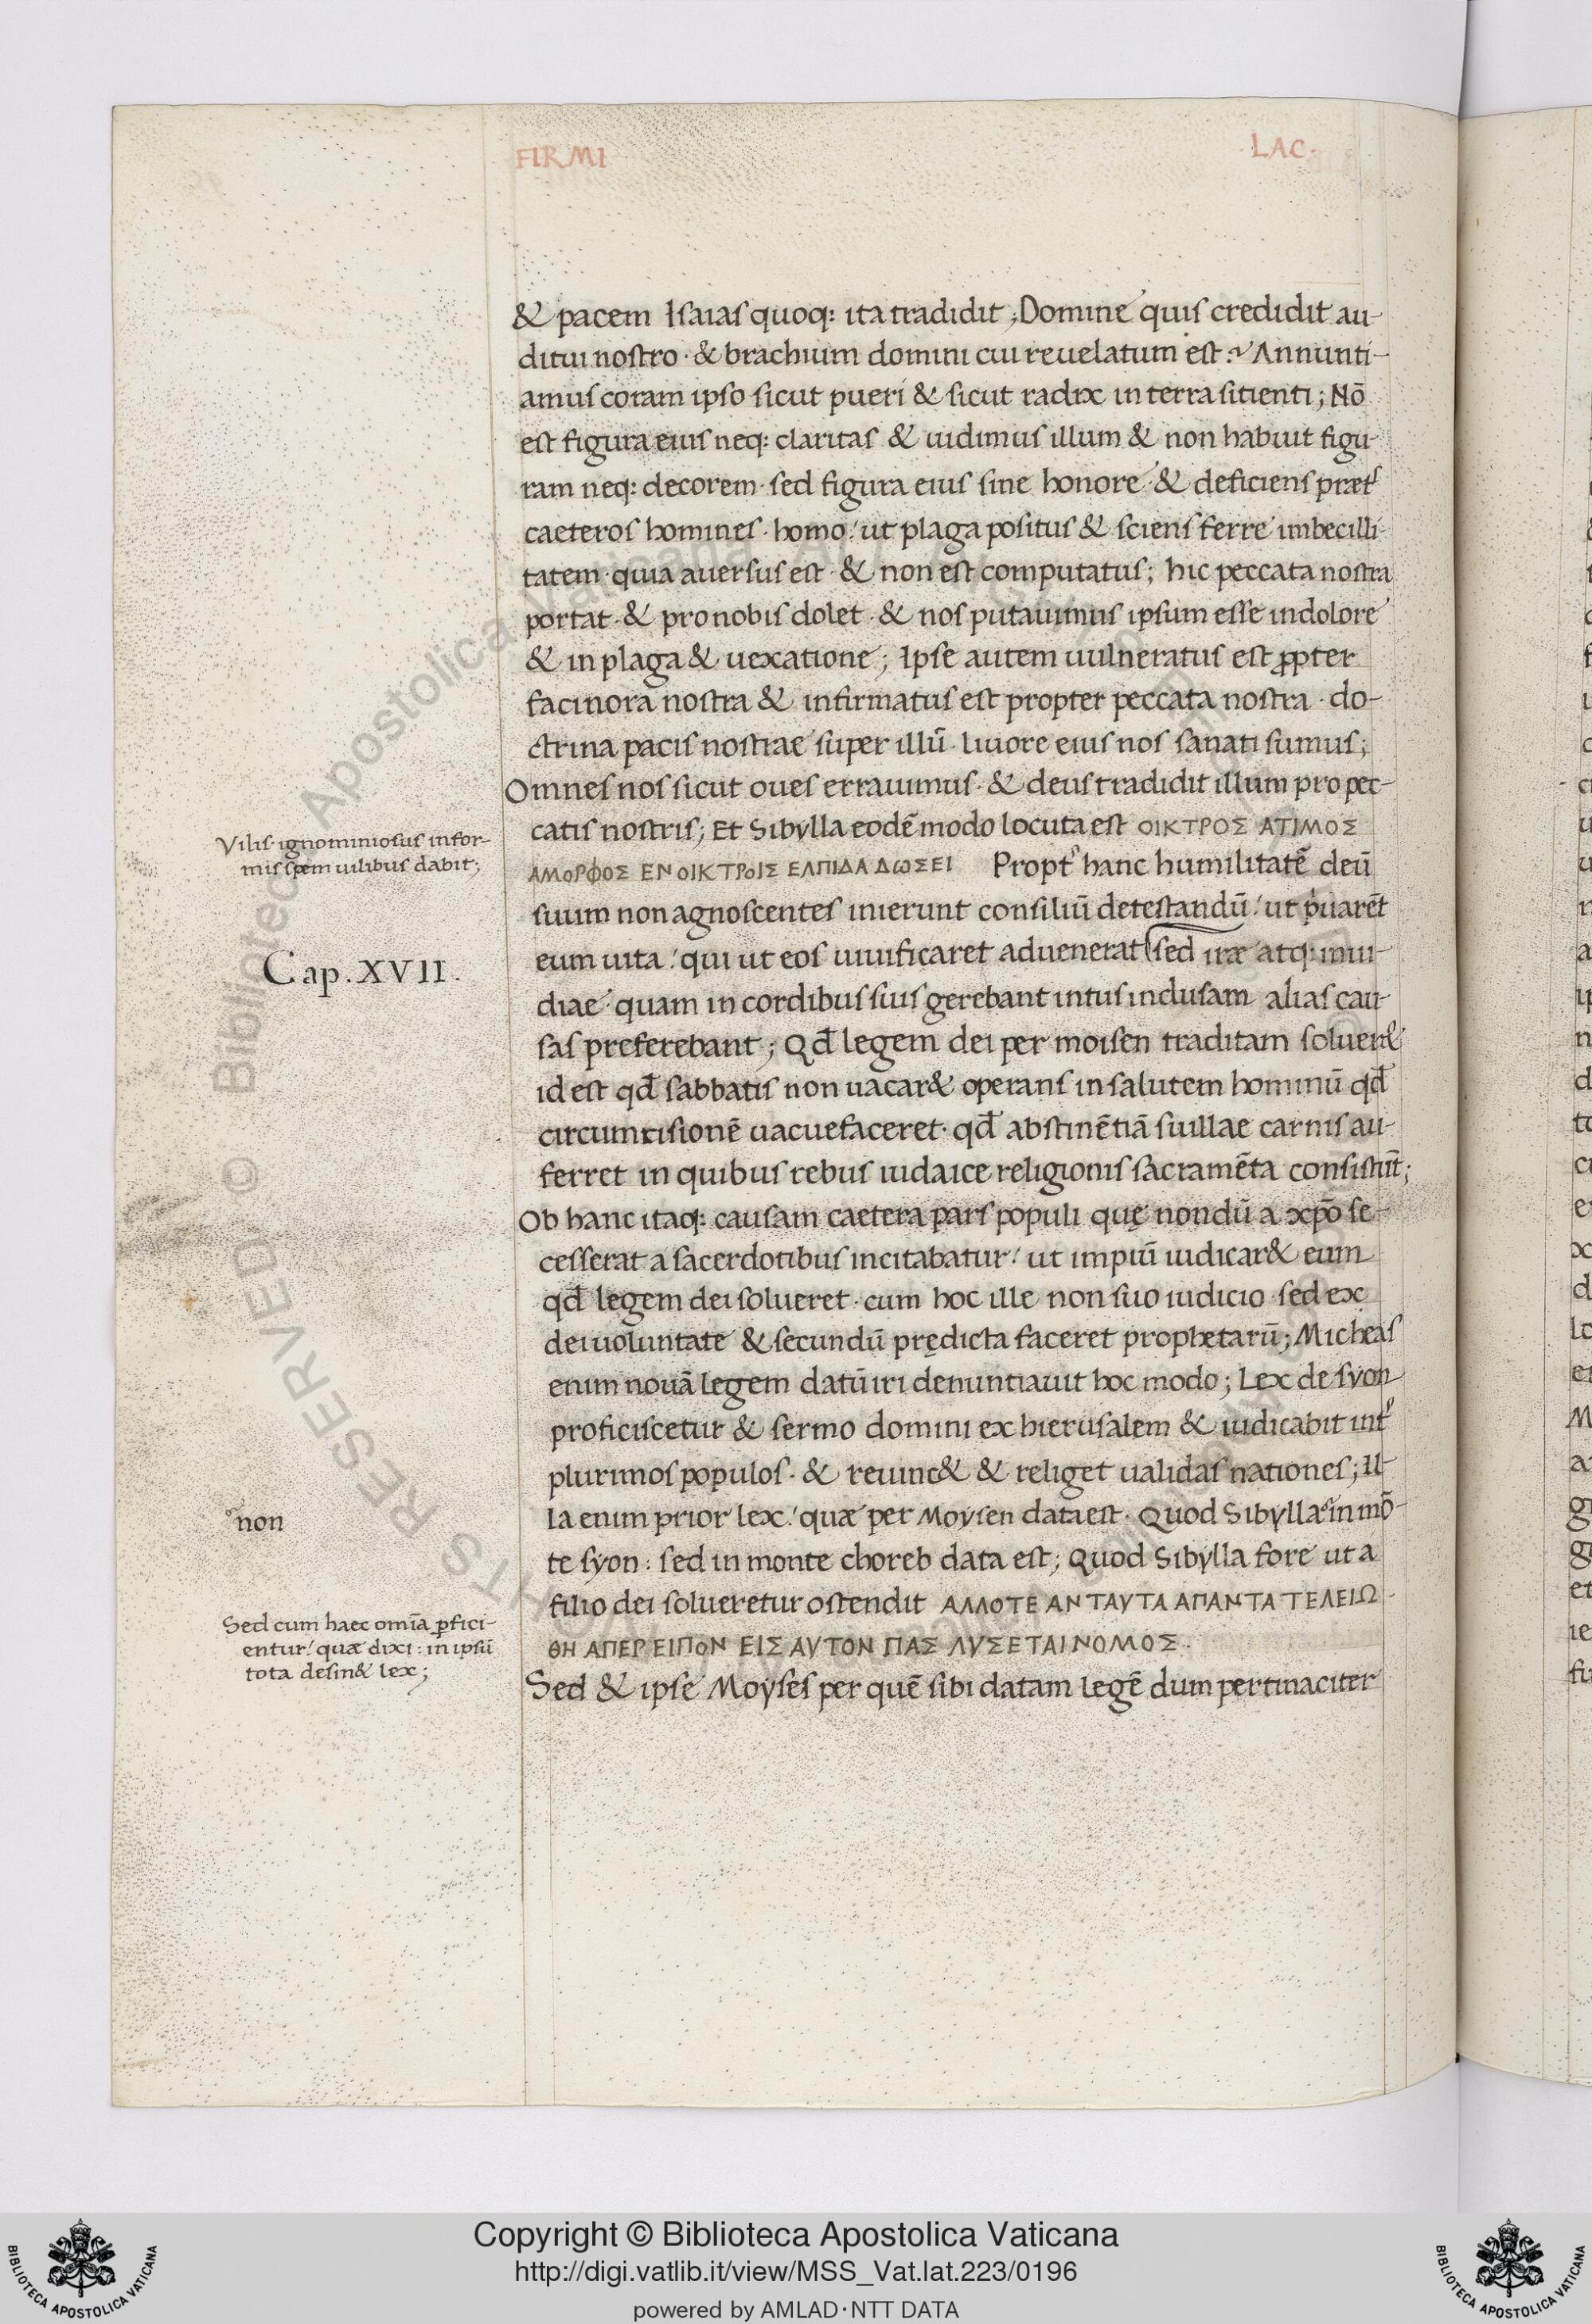 FIRMI LAC·
& pacem Isaias quoq: ita tradidit ; Domine quis credidit au-
ditui nostro · & brachium domini cui reuelatum est ? Annunti-
amus coram ipso sicut pueri & sicut radix in terra sitienti ; Nō
est figura eius neq: claritas & uidimus illum & non habuit figu-
ram neq: decorem · sed figura eius sine honore · & deficiens præt
caeteros homines · homo ut plaga positus & sciens ferre imbecilli-
tatem · quia auersus est · & non est computatus ; hic peccata nostra
portat · & pro nobis dolet · & nos putauimus ipsum esse in dolore
& in plaga & uexatione ; Ipse autem uulneratus est ꝓpter
facinora nostra & infirmatus est propter peccata nostra · do-
ctrina pacis nostrae super illū · liuore eius nos sanati sumus ;
Omnes nos sicut oues errauimus · & deus tradidit illum pro pec-
catis nostris ; Et Sibylla eodē modo locuta est ΟΙΚΤΡΟΣ ΑΤΙΜΟΣ
ΑΜΟΡΦΟΣ ΕΝ ΟΙΚΤΡΟΙΣ ΕΛΠΙΔΑ ΔΩΣΕΙ Propt hanc humilitatē deū
Vilis ignominiosus infor-
mis spem uilibus dabit ;
suum non agnoscentes inierunt consiliū detestandū ut pͥuarēt
eum uita qui ut eos uiuificaret aduenerat sed iræ atq: inui-
Cap. XVII.
diae quam in cordibus suis gerebant intus inclusam alias cau-
sas preferebant ; Qđ legem dei per moisen traditam soluer&
id est qđ sabbatis non uacar& operans in salutem hominū qđ
circumcisionē uacuefaceret · qđ abstinētiā suillae carnis au-
ferret in quibus rebus iudaice religionis sacramēta consistūt ;
Ob hanc itaq: causam caetera pars populi quę nondū a xp̄o se-
cesserat a sacerdotibus incitabatur ut impiū iudicar& eum
qđ legem dei solueret · cum hoc ille non suo iudicio sed ex
dei uoluntate & secundū prędicta faceret prophetarū ; Micheas
enim nouā legem datū iri denuntiauit hoc modo ; Lex de syon
proficiscetur & sermo domini ex hierusalem & iudicabit int
plurimos populos · & reuinc& & religet ualidas nationes ; Il-
la enim prior lex quæ per Moysen data est · Quod Sibylla in mō-
non
te syon : sed in monte choreb data est ; Quod Sibylla fore ut a
filio dei solueretur ostendit ΑΛΛΟΤΕ ΑΝ ΤΑΥΤΑ ΑΠΑΝΤΑ ΤΕΛΕΙΩ-
ΘΗ ΑΠΕΡ ΕΙΠΟΝ ΕΙΣ ΑΥΤΟΝ ΠΑΣ ΛΥΣΕΤΑΙ ΝΟΜΟΣ ·
Sed cum haec omīa ꝑfici-
entur quæ dixi : in ipsū
tota desin& lex ;
Sed & ipse Moyses per quē sibi datam legē dum pertinaciter
Copyright © Biblioteca Apostolica Vaticana
http://digi.vatlib.it/view/MSS_Vat.lat.223/0196
powered by AMLAD·NTT DATA
BIBLIOTECA APOSTOLICA VATICANA
BIBLIOTECA APOSTOLICA VATICANA